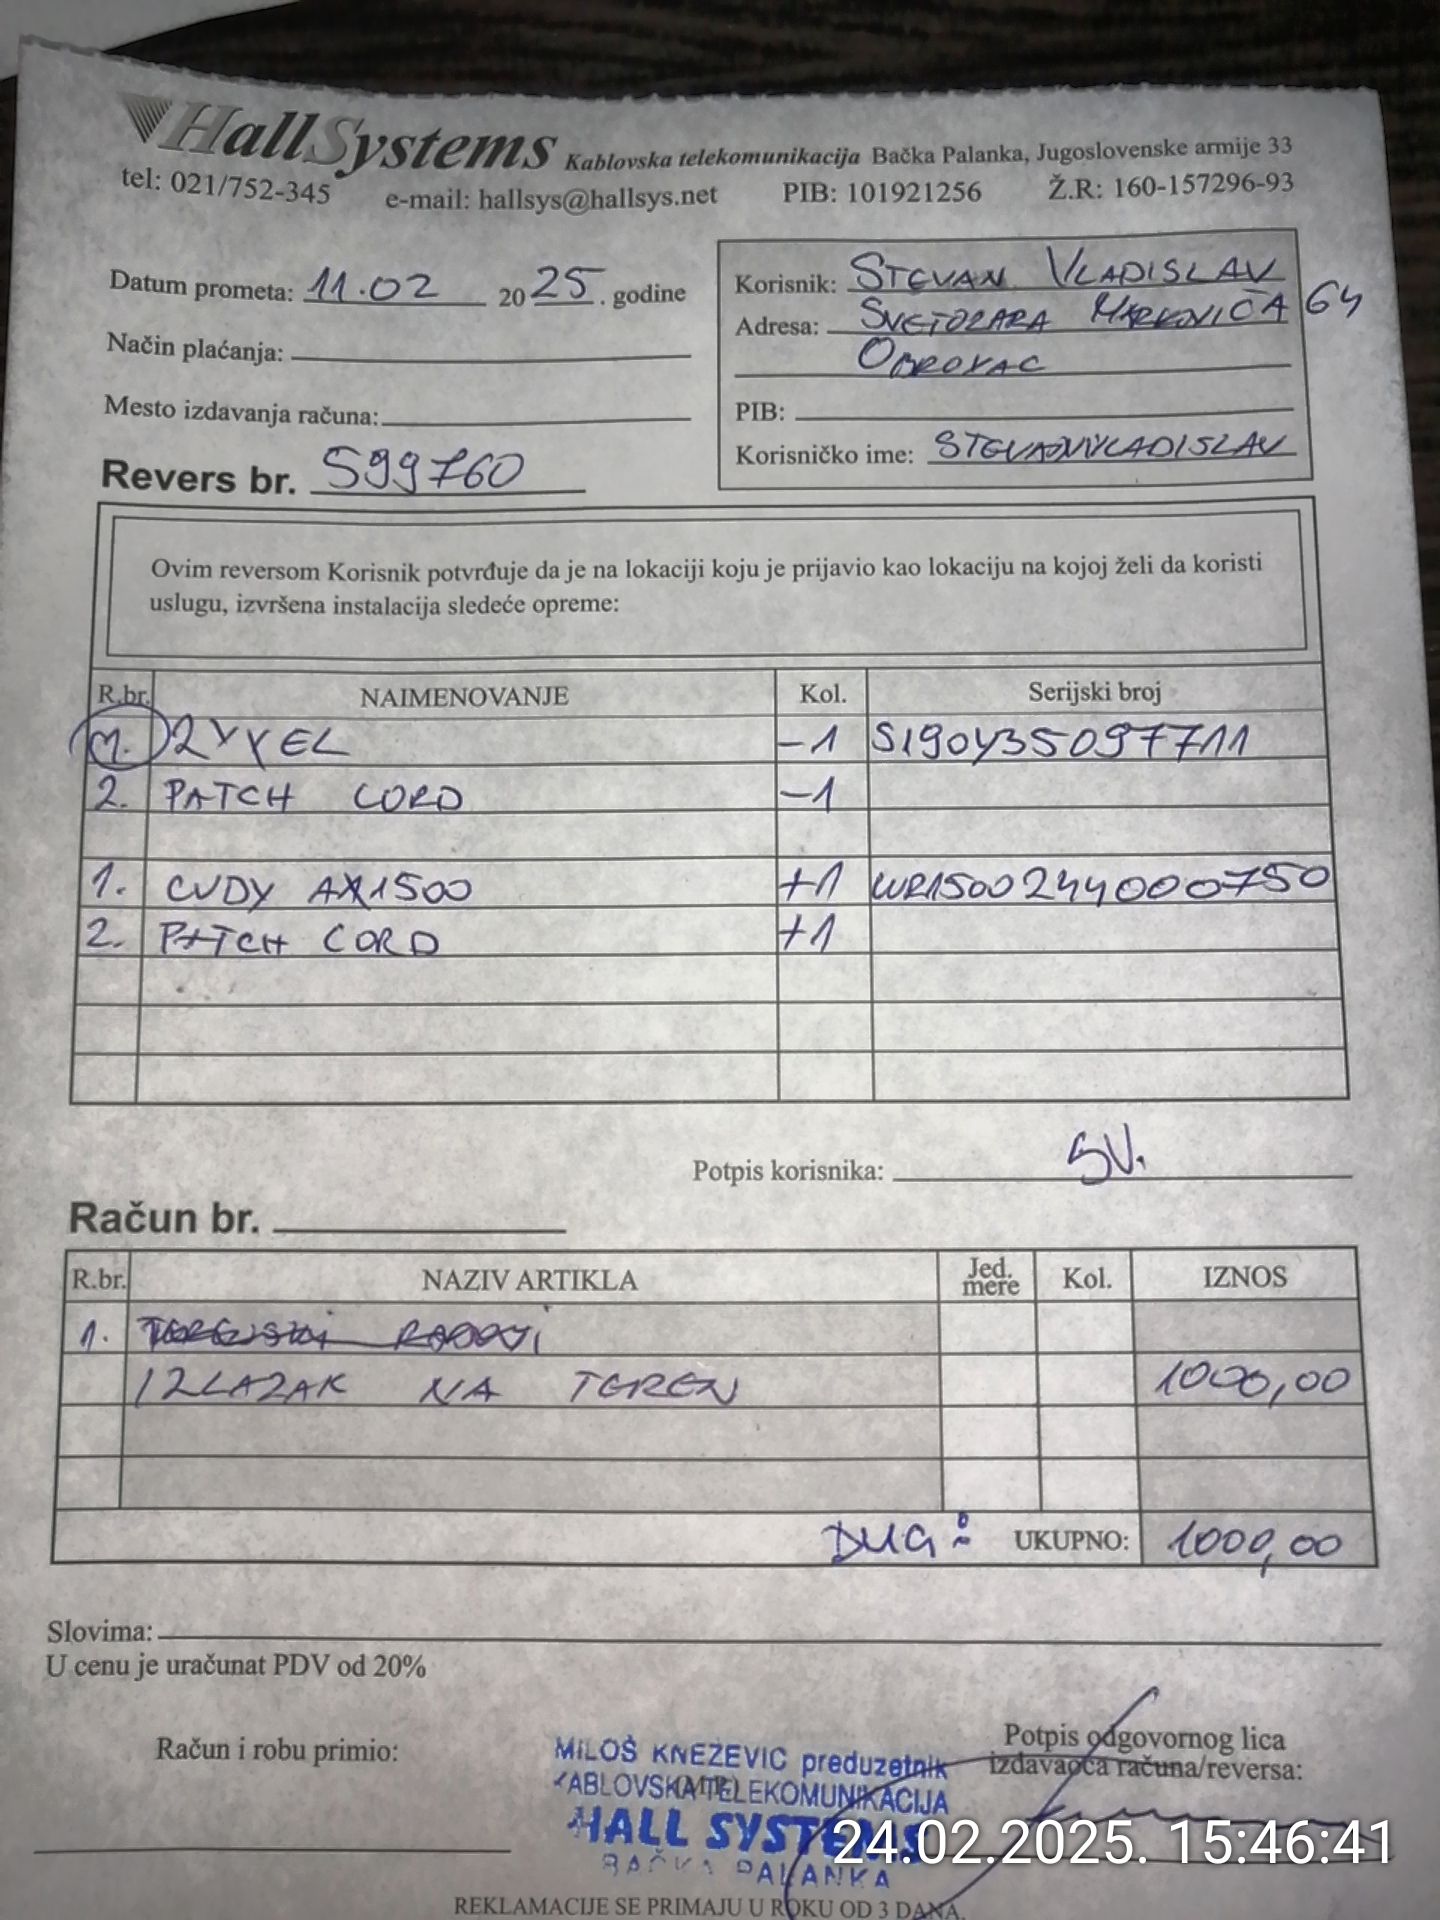 HallSystems Kablovska telekomunikacija Bačka Palanka, Jugoslovenske armije 33
tel: 021/752-345 e-mail: hallsys@hallsys.net PIB: 101921256 Ž.R: 160-157296-93
Datum prometa: 11.02 2025. godine
Način plaćanja:
Mesto izdavanja računa:
Revers br. 599760
Korisnik: STEVAN VLADISLAV
Adresa: SVETOZARA MARKOVIĆA 64
OBROVAC
PIB:
Korisničko ime: STEVANVLADISLAV
Ovim reversom Korisnik potvrđuje da je na lokaciji koju je prijavio kao lokaciju na kojoj želi da koristi
uslugu, izvršena instalacija sledeće opreme:
R.br. NAIMENOVANJE Kol. Serijski broj
1. ZYXEL -1 S190Y35097711
2. PATCH CORD -1
1. CUDY AX1500 +1 WR1500244000750
2. PATCH CORD +1
Potpis korisnika: SV.
Račun br.
R.br. NAZIV ARTIKLA Jed. mere Kol. IZNOS
1.
IZLAZAK NA TEREN 1000,00
DUG: UKUPNO: 1000,00
Slovima:
U cenu je uračunat PDV od 20%
Račun i robu primio:
MILOŠ KNEŽEVIĆ preduzetnik
KABLOVSKA TELEKOMUNIKACIJA
HALL SYSTEMS
BAČKA PALANKA
Potpis odgovornog lica
izdavaoca računa/reversa:
24.02.2025. 15:46:41
REKLAMACIJE SE PRIMAJU U ROKU OD 3 DANA.